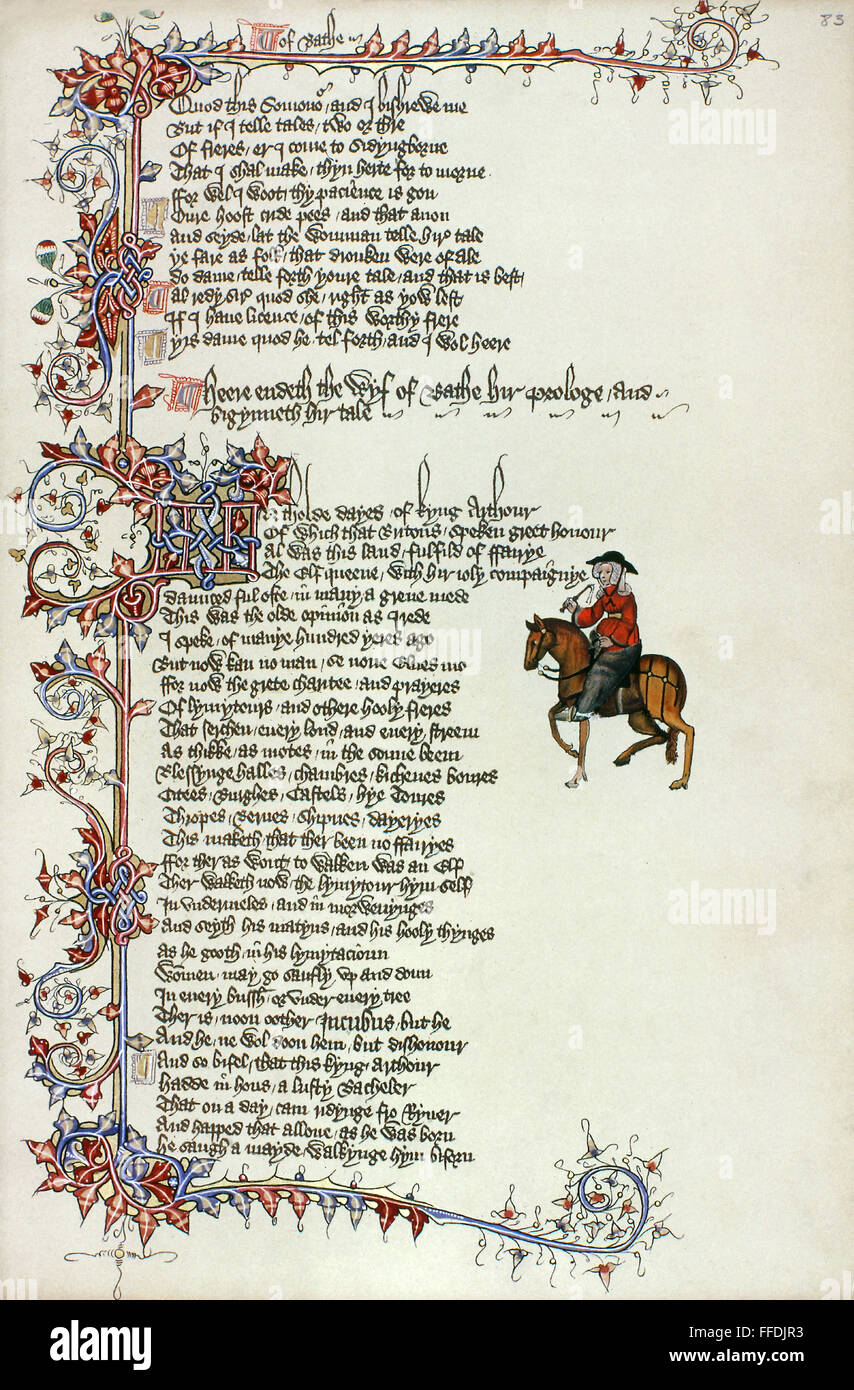 83
of Bathe
Quod this Somonor, and I bishrewe me
But if I telle tales, two or thre
Of freres, er I come to Sidyngborne
That I shal make, thyn herte for to morne
ffor wel I woot, thy pacience is gon
Oure hoost cride pees, and that anon
And seyde, lat the womman telle hir tale
ye fare as folk, that dronken were of ale
do dame, telle forth youre tale, and that is best
Al redy sir, quod she, right as yow lest
If I haue licence, of this worthy frere
yis dame quod he, tel forth, and I wol heere
Heere endeth the Wyf of Bathe hir prologe, and
bigynneth hir tale
In tholde dayes, of kyng Arthour
Of which that Britons, speken greet honour
Al was this land, fulfild of ffairye
The Elf queene, with hir ioly compaignye
daunced ful ofte, in many a grene mede
This was the olde opinion as I rede
I speke, of manye hundred yeres ago
But now kan no man, se none Elues mo
ffor now the grete charitee, and prayeres
Of lymytours, and othere hooly freres
That serchen, euery lond, and euery streem
As thikke, as motes, in the sonne beem
Blessynge halles, chambres, kichenes boures
Citees, Burghes, Castels, hye Toures
Thropes, Bernes, Shipnes, dayeryes
This maketh that ther been no ffairyes
ffor ther as wont, to walken was an Elf
Ther walketh now, the lymytour hym self
In vndermeles, and in morwenynges
And seyth his matyns, and his hooly thynges
As he gooth, in his lymytacioun
Women, may go saufly, vp and doun
In euery bussh, or vnder euery tree
Ther is, noon oother Incubus, but he
And he, ne wol doon hem, but dishonour
And so bifel, that this kyng Arthour
hadde in hous, a lusty Bacheler
That on a day, cam ridynge fro Ryuer
And happed that allone, as he was born
he saugh a mayde, walkynge hym biforn
alamy
alamy
alamy
alamy
Image ID: FFDJR3
www.alamy.com